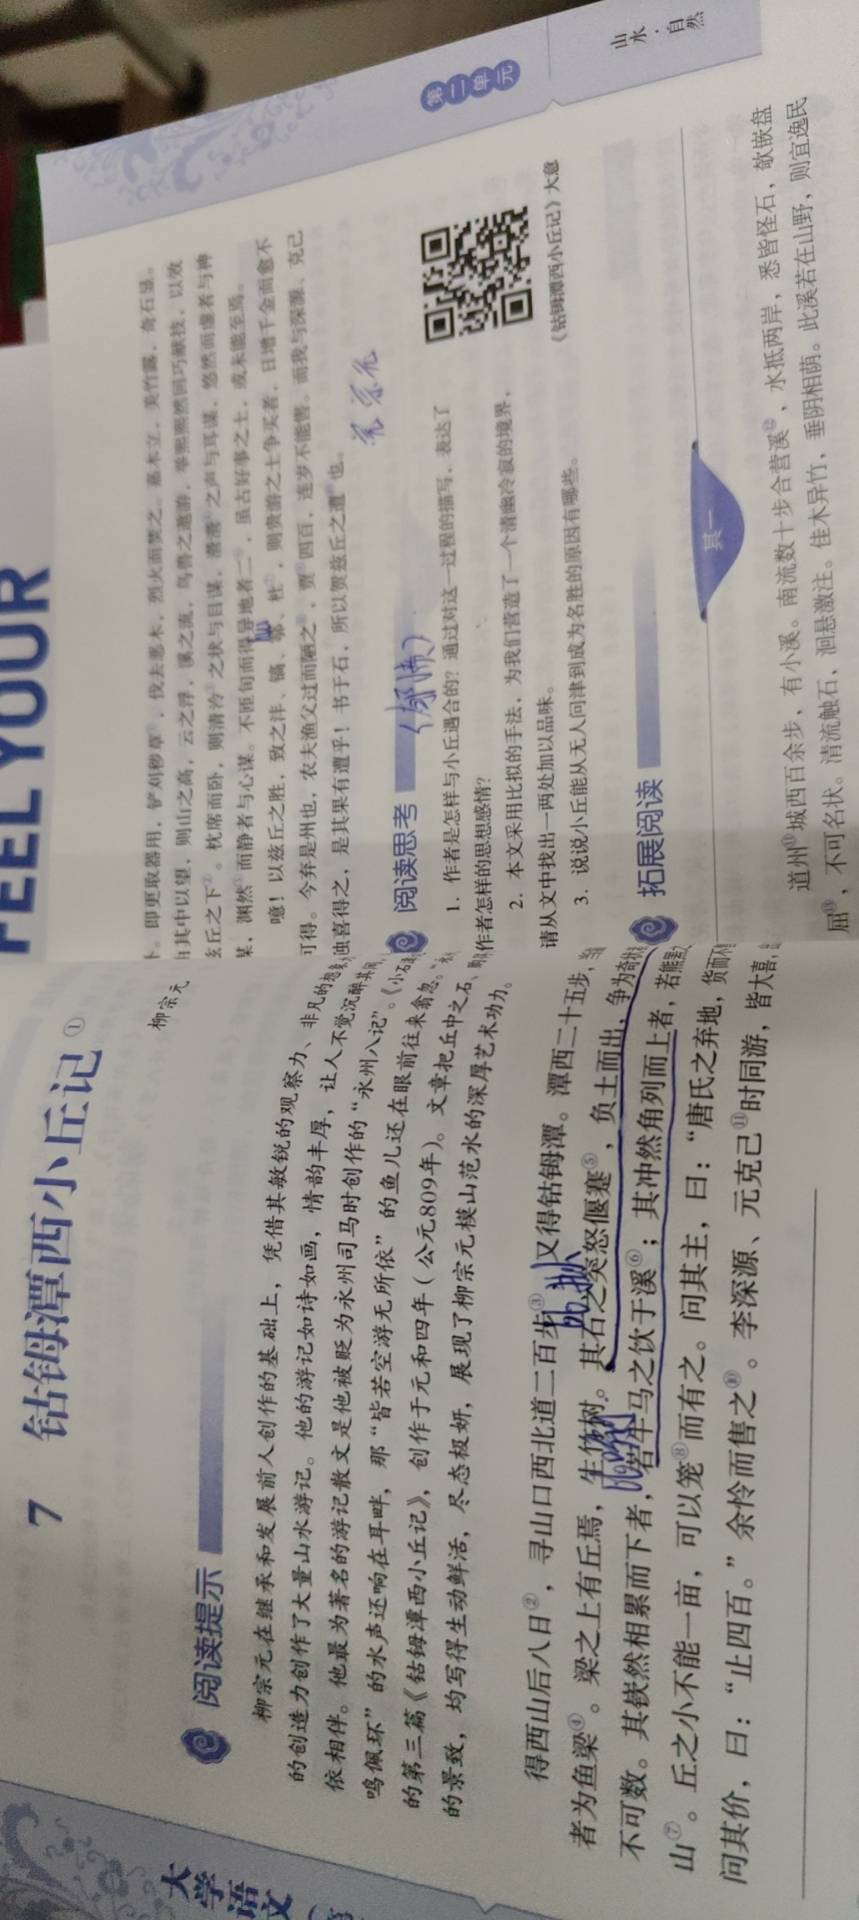 7 钴鉧潭西小丘记①
柳宗元
阅读提示
柳宗元在继承和发展前人创作的基础上，凭借其敏锐的观察力、非凡的想
的创造力创作了大量山水游记。他的游记如诗如画，情韵丰厚，让人不觉沉醉其间
依相伴。他最为著名的游记散文是他被贬为永州司马时创作的“永州八记”。《小石
鸣佩环”的水声还响在耳畔，那“皆若空游无所依”的鱼儿还在眼前往来翕忽。
的第三篇《钴鉧潭西小丘记》，创作于元和四年（公元809年）。文章把丘中之石、
的景致，均写得生动鲜活，尽态极妍，展现了柳宗元模山范水的深厚艺术功力。
得西山后八日②，寻山口西北道二百步③，又得钴鉧潭。潭西二十五步，
者为鱼梁④。梁之上有丘焉，生竹树。其石之突怒偃蹇⑤，负土而出，争为奇状
不可数。其嵚然相累而下者，若牛马之饮于溪⑥；其冲然角列而上者，若熊罴
山⑦。丘之小不能一亩，可以笼⑧而有之。问其主，曰：“唐氏之弃地，货而不
问其价，曰：“止四百。”余怜而售之⑩。李深源、元克己⑪时同游，皆大喜，
大学语文
FEEL YOUR
第二单元
山水·自然
。即更取器用，铲刈秽草，伐去恶木，烈火而焚之。嘉木立，美竹露，奇石显。
其中以望，则山之高，云之浮，溪之流，鸟兽之遨游，举熙熙然回巧献技，以效
兹丘之下。枕席而卧，则清泠之状与目谋，瀯瀯之声与耳谋，悠然而虚者与神
谋，渊然而静者与心谋。不匝旬而得异地者二，虽古好事之士，或未能至焉。
噫！以兹丘之胜，致之沣、镐、鄠、杜，则贵游之士争买者，日增千金而愈不
可得。今弃是州也，农夫渔父过而陋之，贾四百，连岁不能售。而我与深源、克己
独喜得之，是其果有遭乎！书于石，所以贺兹丘之遭也。
阅读思考
1. 作者是怎样与小丘遇合的？通过对这一过程的描写，表达了
作者怎样的思想感情？
2. 本文采用比拟的手法，为我们营造了一个清幽冷寂的境界，
请从文中找出一两处加以品味。
3. 说说小丘能从无人问津到成为名胜的原因有哪些。
《钴鉧潭西小丘记》大意
拓展阅读
其一
道州⑪城西百余步，有小溪。南流数十步合营溪⑫，水抵两岸，悉皆怪石，欹嵌盘
屈⑬，不可名状。清流触石，洄悬激注。佳木异竹，垂阴相荫。此溪若在山野，则宜逸民